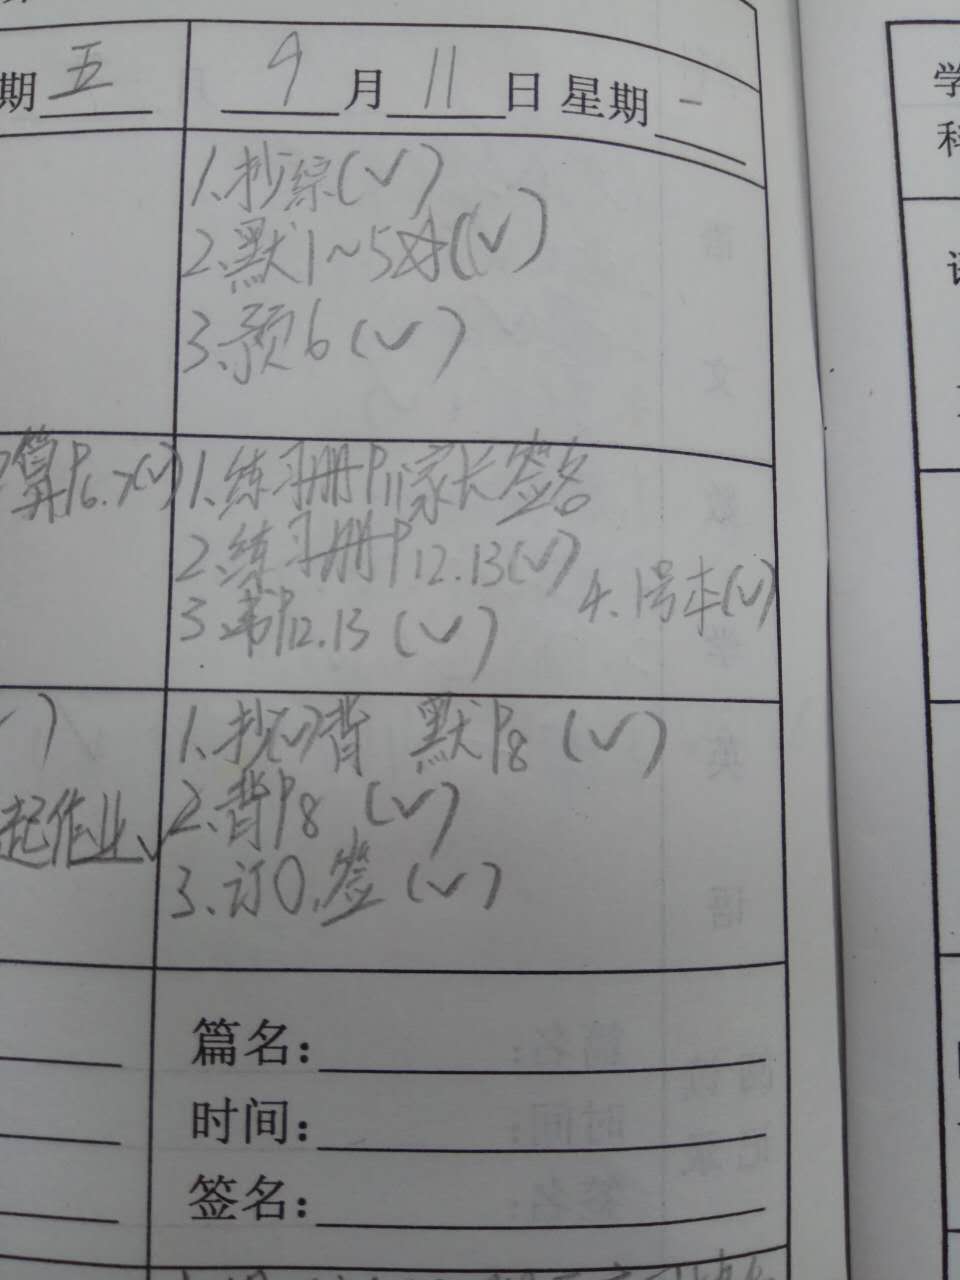 期五
9月11日星期一
1.抄综(√)
2.默1~5(√)
3.预6(√)
算P6.7(√)
1.练习册P11家长签名
2.练习册P12.13(√)
3.书P12.13(√)
4.1号本(√)
1.抄 背 默P8(√)
2.背P8(√)
3.订0.签(√)
起作业√
篇名:
时间:
签名:
学
科